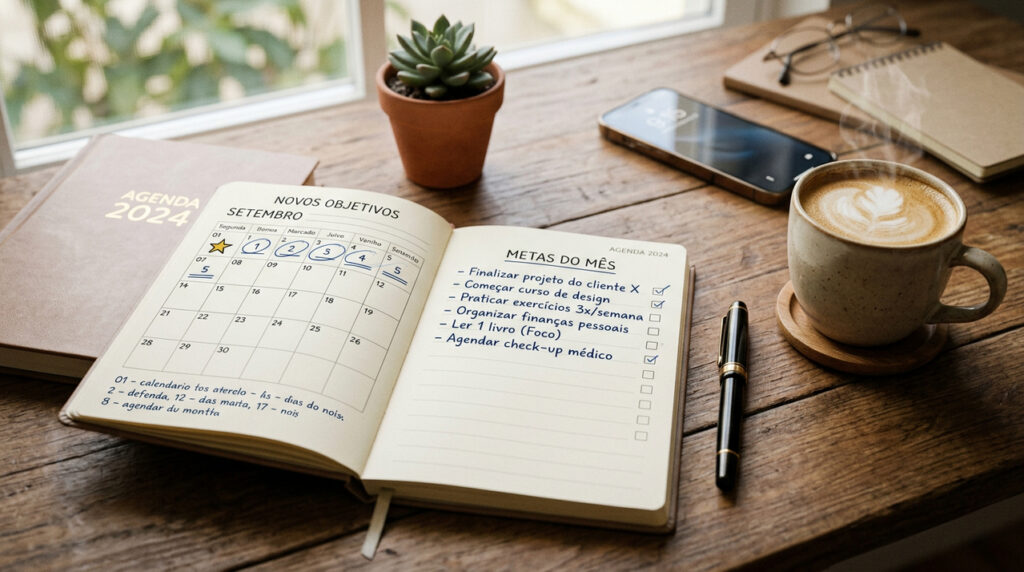 AGENDA
2024
NOVOS OBJETIVOS
SETEMBRO
Segunda Bemos Marcado Julvo Vanibo Setemão
01 1 2 3 4 5
07 08 09 10 11 12
5 5
14 15 16 17 18 19
21 22 23 24 25 26
28 29 30
01 - calendario tos aterelo - ás - dias do nois,
2 - defenda, 12 - das maita, 17 - nois
8 - agendar du montta
AGENDA 2024
METAS DO MÊS
- Finalizar projeto do cliente X
- Começar curso de design
- Praticar exercícios 3x/semana
- Organizar finanças pessoais
- Ler 1 livro (Foco)
- Agendar check-up médico